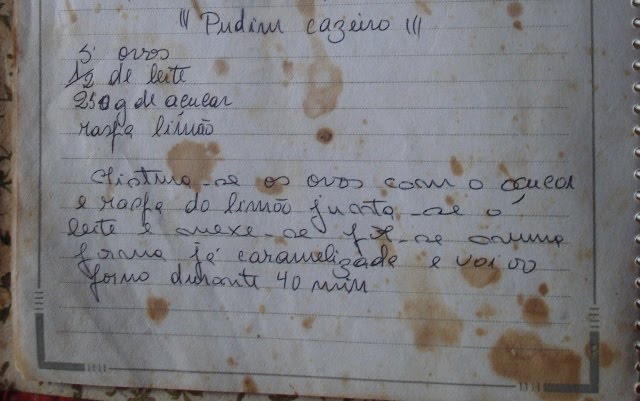 "" Pudim cazeiro ""
5 ovos
1/2 de leite
250 g de açucar
raspa limão
Mistura-se os ovos com o açucar
e raspa do limão junta-se o
leite e mexe-se numa
forma já caramelizada e vai ao
forno durante 40 min